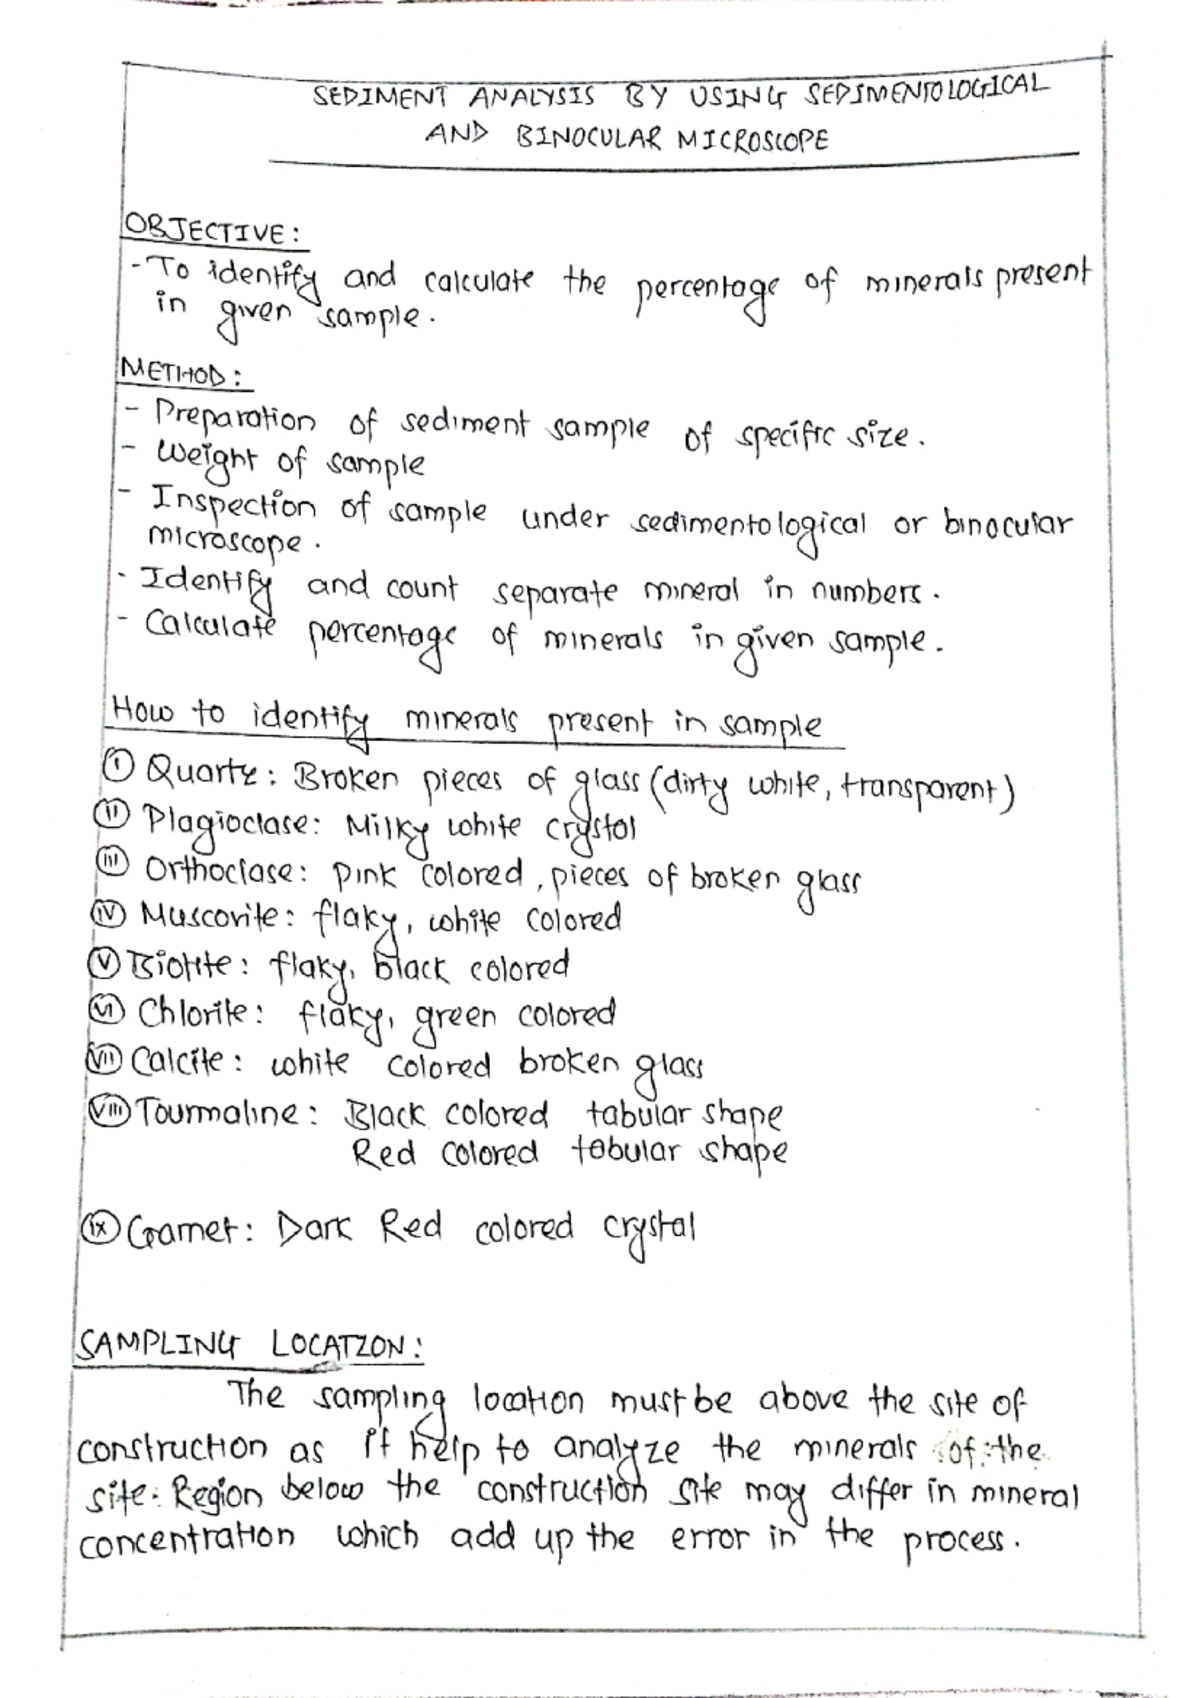 SEDIMENT ANALYSIS BY USING SEDIMENTOLOGICAL
AND BINOCULAR MICROSCOPE
OBJECTIVE:
- To identify and calculate the percentage of minerals present
in given sample.
METHOD:
- Preparation of sediment sample of specific size.
- Weight of sample
- Inspection of sample under sedimentological or binocular
microscope.
- Identify and count separate mineral in numbers.
- Calculate percentage of minerals in given sample.
How to identify minerals present in sample
(i) Quartz: Broken pieces of glass (dirty white, transparent)
(ii) Plagioclase: Milky white crystal
(iii) Orthoclase: pink colored, pieces of broken glass
(iv) Muscovite: flaky, white colored
(v) Biotite: flaky, black colored
(vi) Chlorite: flaky, green colored
(vii) Calcite: white colored broken glass
(viii) Tourmaline: Black colored tabular shape
Red colored tabular shape
(ix) Garnet: Dark Red colored crystal
SAMPLING LOCATION:
The sampling location must be above the site of
construction as it help to analyze the minerals of the
site. Region below the construction site may differ in mineral
concentration which add up the error in the process.